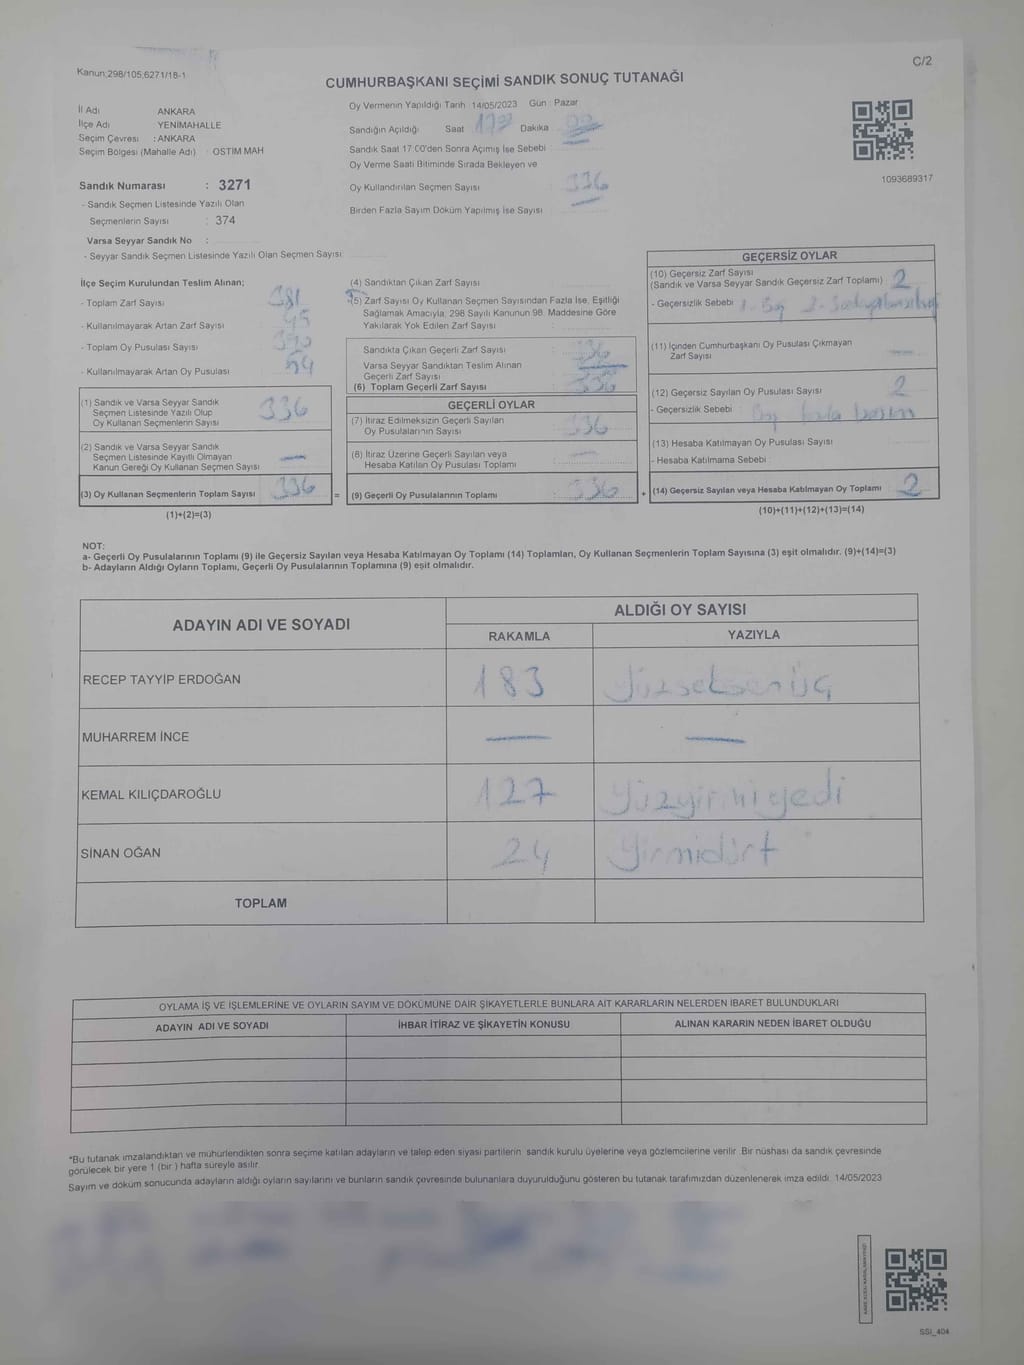 Kanun;298/105;6271/18-1
C/2
CUMHURBAŞKANI SEÇİMİ SANDIK SONUÇ TUTANAĞI
İl Adı ANKARA
İlçe Adı YENİMAHALLE
Seçim Çevresi : ANKARA
Seçim Bölgesi (Mahalle Adı) : OSTİM MAH
Sandık Numarası : 3271
- Sandık Seçmen Listesinde Yazılı Olan
Seçmenlerin Sayısı : 374
Varsa Seyyar Sandık No :
- Seyyar Sandık Seçmen Listesinde Yazılı Olan Seçmen Sayısı:
Oy Vermenin Yapıldığı Tarih 14/05/2023 Gün : Pazar
Sandığın Açıldığı Saat Dakika
Sandık Saat 17:00'den Sonra Açımış İse Sebebi
Oy Verme Saati Bitiminde Sırada Bekleyen ve
Oy Kullandırılan Seçmen Sayısı : 336
Birden Fazla Sayım Döküm Yapılmış İse Sayısı
1093689317
İlçe Seçim Kurulundan Teslim Alınan;
- Toplam Zarf Sayısı 381
- Kullanılmayarak Artan Zarf Sayısı 45
- Toplam Oy Pusulası Sayısı 390
- Kullanılmayarak Artan Oy Pusulası 54
(1) Sandık ve Varsa Seyyar Sandık
Seçmen Listesinde Yazılı Olup
Oy Kullanan Seçmenlerin Sayısı 336
(2) Sandık ve Varsa Seyyar Sandık
Seçmen Listesinde Kayıtlı Olmayan
Kanun Gereği Oy Kullanan Seçmen Sayısı —
(3) Oy Kullanan Seçmenlerin Toplam Sayısı 336
(1)+(2)=(3)
(4) Sandıktan Çıkan Zarf Sayısı
(5) Zarf Sayısı Oy Kullanan Seçmen Sayısından Fazla İse, Eşitliği
Sağlamak Amacıyla, 298 Sayılı Kanunun 98. Maddesine Göre
Yakılarak Yok Edilen Zarf Sayısı
Sandıkta Çıkan Geçerli Zarf Sayısı : 336
Varsa Seyyar Sandıktan Teslim Alınan
Geçerli Zarf Sayısı
(6) Toplam Geçerli Zarf Sayısı 336
GEÇERLİ OYLAR
(7) İtiraz Edilmeksizin Geçerli Sayılan
Oy Pusulalarının Sayısı 336
(8) İtiraz Üzerine Geçerli Sayılan veya
Hesaba Katılan Oy Pusulası Toplamı —
= (9) Geçerli Oy Pusulalarının Toplamı : 336
GEÇERSİZ OYLAR
(10) Geçersiz Zarf Sayısı
(Sandık ve Varsa Seyyar Sandık Geçersiz Zarf Toplamı) 2
- Geçersizlik Sebebi
(11) İçinden Cumhurbaşkanı Oy Pusulası Çıkmayan
Zarf Sayısı —
(12) Geçersiz Sayılan Oy Pusulası Sayısı 2
- Geçersizlik Sebebi : fazla
(13) Hesaba Katılmayan Oy Pusulası Sayısı
- Hesaba Katılmama Sebebi :
+ (14) Geçersiz Sayılan veya Hesaba Katılmayan Oy Toplamı 2
(10)+(11)+(12)+(13)=(14)
NOT:
a- Geçerli Oy Pusulalarının Toplamı (9) ile Geçersiz Sayılan veya Hesaba Katılmayan Oy Toplamı (14) Toplamları, Oy Kullanan Seçmenlerin Toplam Sayısına (3) eşit olmalıdır. (9)+(14)=(3)
b- Adayların Aldığı Oyların Toplamı, Geçerli Oy Pusulalarının Toplamına (9) eşit olmalıdır.
ADAYIN ADI VE SOYADI ALDIĞI OY SAYISI
RAKAMLA YAZIYLA
RECEP TAYYİP ERDOĞAN 183 Yüzseksenüç
MUHARREM İNCE — —
KEMAL KILIÇDAROĞLU 127 Yüzyirmiyedi
SİNAN OĞAN 24 Yirmidört
TOPLAM
OYLAMA İŞ VE İŞLEMLERİNE VE OYLARIN SAYIM VE DÖKÜMÜNE DAİR ŞİKAYETLERLE BUNLARA AİT KARARLARIN NELERDEN İBARET BULUNDUKLARI
ADAYIN ADI VE SOYADI İHBAR İTİRAZ VE ŞİKAYETİN KONUSU ALINAN KARARIN NEDEN İBARET OLDUĞU
*Bu tutanak imzalandıktan ve mühürlendikten sonra seçime katılan adayların ve talep eden siyasi partilerin sandık kurulu üyelerine veya gözlemcilerine verilir. Bir nüshası da sandık çevresinde
görülecek bir yere 1 (bir ) hafta süreyle asılır.
Sayım ve döküm sonucunda adayların aldığı oyların sayılarını ve bunların sandık çevresinde bulunanlara duyurulduğunu gösteren bu tutanak tarafımızdan düzenlenerek imza edildi. 14/05/2023
SSI_404